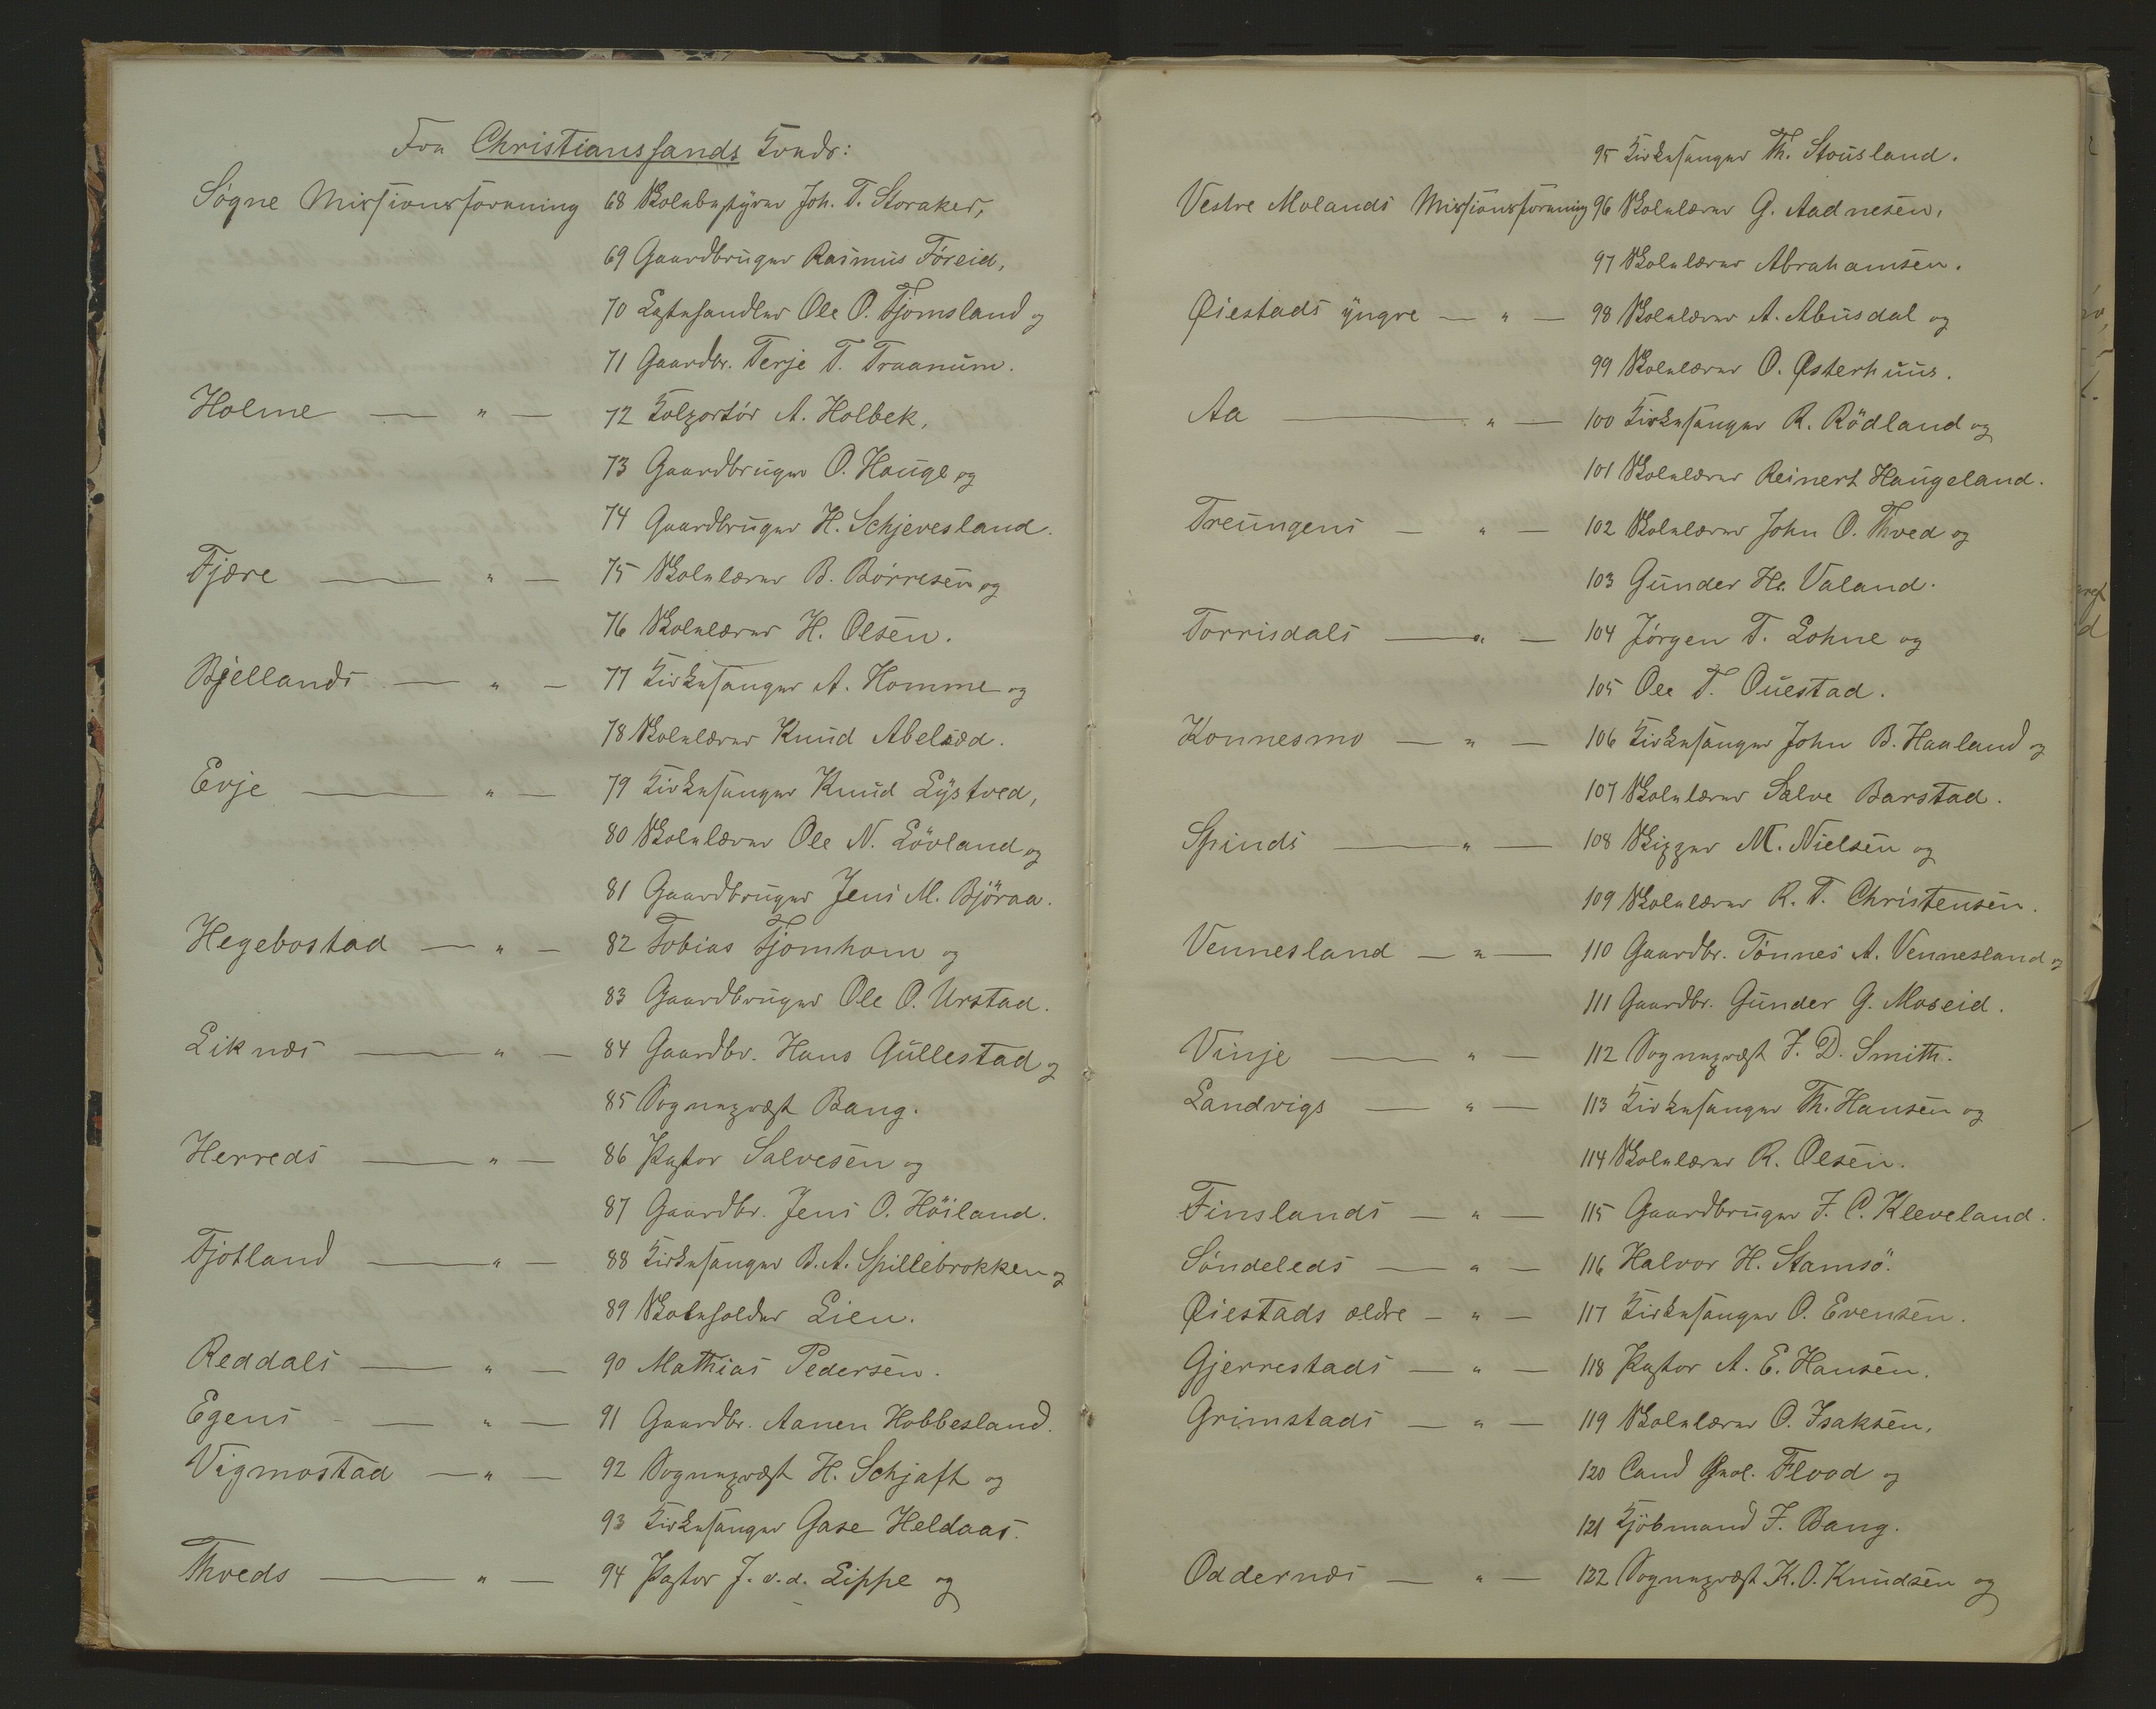 Fra Christianssands Kreds:
Søgne Missionsforening 68 Skolebestyrer Joh. T. Storaker,
69 Gaardbruger Rasmus Føreid,
70 Ole O. Tjomsland og
71 Gaardbr. Terje T. Traanum.
Holme — " — 72 Kolportør A. Holbek,
73 Gaardbruger O. Hauge og
74 Gaardbruger H. Schjevesland.
Fjære — " — 75 Skolelærer B. Børresen og
76 Skolelærer H. Olsen.
Bjellands — " — 77 Kirkesanger A. Homme og
78 Skolelærer Knud Abelsæd.
Evje — " — 79 Kirkesanger Knud Lystved,
80 Skolelærer Ole N. Lövland og
81 Gaardbruger Jens M. Björaa.
Hegebostad — " — 82 Tobias Tjomhom og
83 Gaardbruger Ole O. Urstad.
Liknæs — " — 84 Gaardbr. Hans Gullestad og
85 Sognepræst Bang.
Herreds — " — 86 Pastor Salvesen og
87 Gaardbr. Jens O. Höiland.
Fjotland — " — 88 Kirkesanger B. A. Spillebrokken og
89 Skoleholder Lien.
Reddals — " — 90 Mathias Pedersen.
Egens — " — 91 Gaardbr. Aanen Hobbesland.
Vigmostad — " — 92 Sognepræst H. Schjøtt og
93 Kirkesanger Gase Heldaas.
Thveds — " — 94 Pastor J. v. d. Lippe og
95 Kirkesanger Th. Stousland.
Vestre Molands Missionsforening 96 Skolelærer G. Aadnesen,
97 Skolelærer Abrahamsen.
Øiestads yngre — " — 98 Skolelærer A. Abusdal og
99 Skolelærer O. Østerhuus.
Aa — " — 100 Kirkesanger R. Rödland og
101 Skolelærer Reinert Haugeland.
Treungens — " — 102 Skolelærer John O. Thved og
103 Gunder Hs. Valand.
Torrisdals — " — 104 Jørgen T. Lohne og
105 Ole T. Ouestad.
Konnesmo — " — 106 Kirkesanger John B. Haaland og
107 Skolelærer Salve Barstad.
Spinds — " — 108 Skipper M. Nielsen og
109 Skolelærer R. T. Christensen.
Vennesland — " — 110 Gaardbr. Tønnes A. Vennesland og
111 Gaardbr. Gunder G. Moseid.
Vinje — " — 112 Sognepræst J. D. Smith.
Landvigs — " — 113 Kirkesanger Th. Hansen og
114 Skolelærer R. Olsen.
Finslands — " — 115 Gaardbruger J. C. Kleveland.
Søndeleds — " — 116 Halvor H. Stamsö.
Øiestads ældre — " — 117 Kirkesanger O. Evensen.
Gjerrestads — " — 118 Pastor A. E. Hansen.
Grimstads — " — 119 Skolelærer O. Isaksen,
120 Cand Flood og
121 Kjöbmand J. Bang.
Oddernæs — " — 122 Sognepræst K. O. Knudsen og